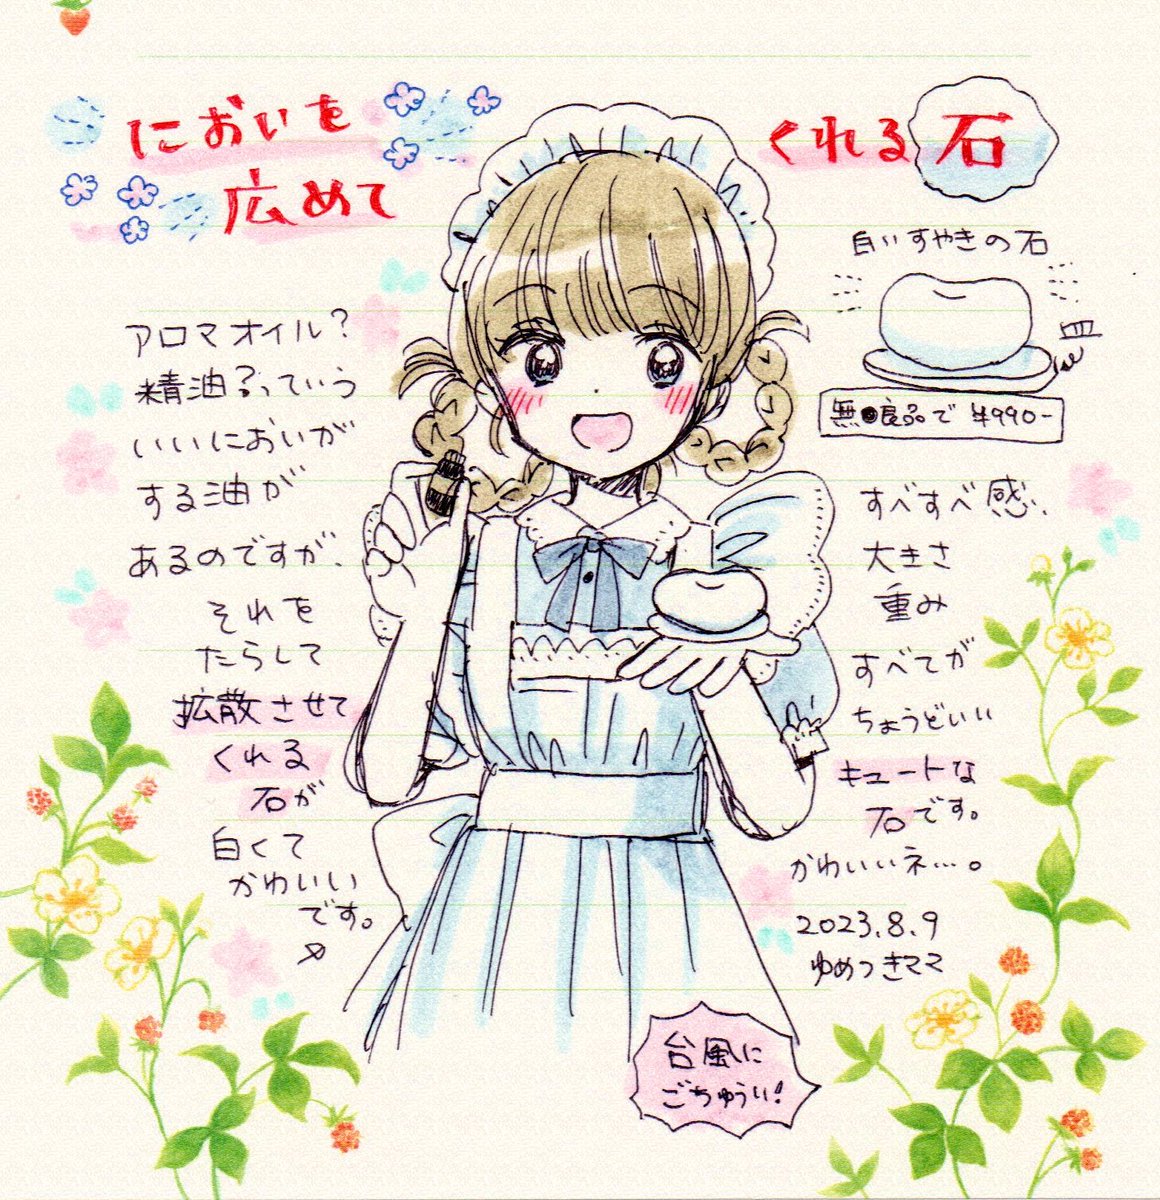 においを
広めて
くれる石
アロマオイル?
精油?っていう
いいにおいが
する油が
あるのですが、
それを
たらして
拡散させて
くれる
石が
白くて
かわいい
です。
白いすやきの石
皿
無●良品で ¥990-
すべすべ感、
大きさ
重み
すべてが
ちょうどいい
キュートな
石です。
かわいいネ…。
2023.8.9
ゆめつきママ
台風に
ごちゅうい!